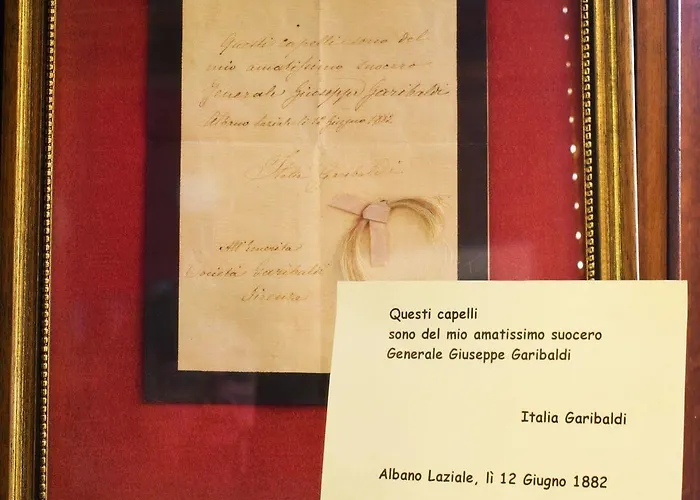 Questi capelli sono del
mio amatissimo suocero
Generale Giuseppe Garibaldi
Albano Laziale li 12 Giugno 1882
Italia Garibaldi
All'Onorata
Società Garibaldi
Firenze
Questi capelli
sono del mio amatissimo suocero
Generale Giuseppe Garibaldi
Italia Garibaldi
Albano Laziale, lì 12 Giugno 1882